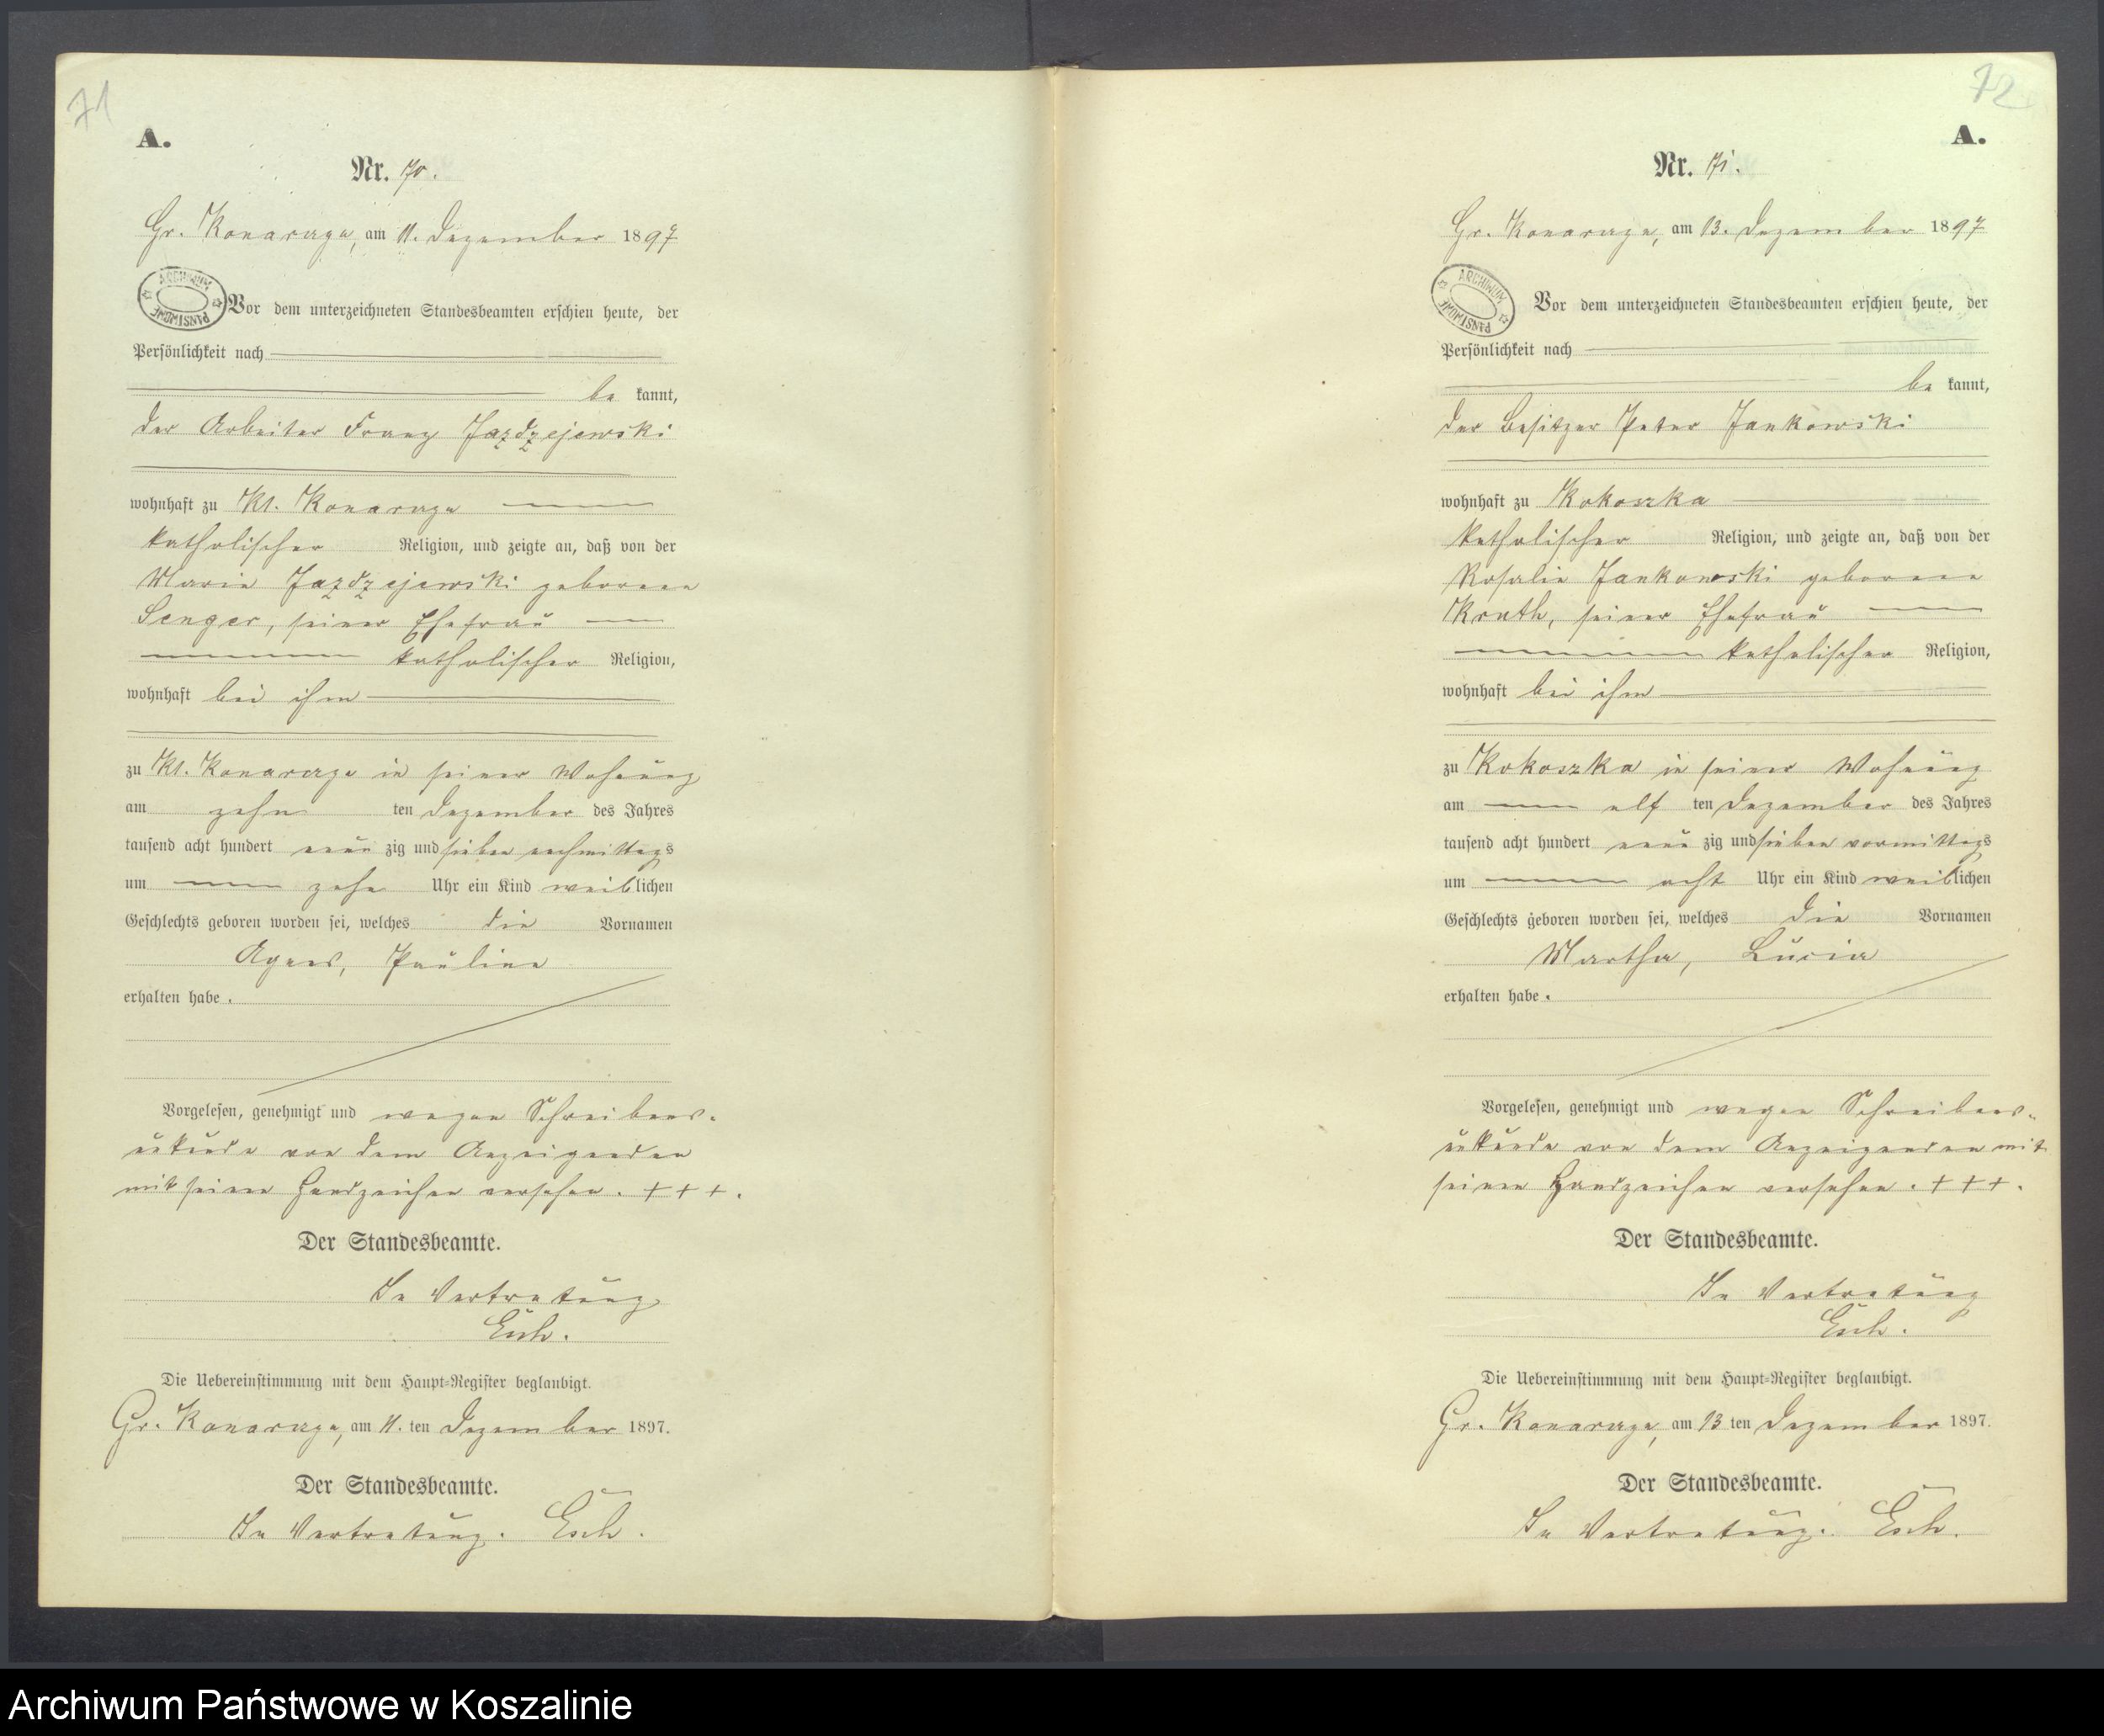 71
A.
Nr. 70.
Gr. Konarczyn, am 11. Dezember 1897
ARCHIWUM PAŃSTWOWE
Vor dem unterzeichneten Standesbeamten erschien heute, der
Persönlichkeit nach
be kannt,
der Arbeiter Franz Jazdzejewski
wohnhaft zu Kl. Konarczyn
katholischer Religion, und zeigte an, daß von der
Maria Jazdzejewski geborene
Senger, seiner Ehefrau
katholischer Religion,
wohnhaft bei ihm
zu Kl. Konarczyn in seiner Wohnung
am zehn ten Dezember des Jahres
tausend acht hundert neun zig und sieben nachmittags
um zehn Uhr ein Kind weiblichen
Geschlechts geboren worden sei, welches die Vornamen
Agnes, Pauline
erhalten habe.
Vorgelesen, genehmigt und wegen Schreibens-
unkunde von dem Anzeigenden
mit seinen Handzeichen versehen. +++.
Der Standesbeamte.
In Vertretung
Esch.
Die Uebereinstimmung mit dem Haupt-Register beglaubigt.
Gr. Konarczyn, am 11. ten Dezember 1897.
Der Standesbeamte.
In Vertretung. Esch.
72
A.
Nr. 71.
Gr. Konarczyn, am 13. Dezember 1897
ARCHIWUM PAŃSTWOWE
Vor dem unterzeichneten Standesbeamten erschien heute, der
Persönlichkeit nach
be kannt,
der Besitzer Peter Jankowski
wohnhaft zu Kokoszka
katholischer Religion, und zeigte an, daß von der
Rosalie Jankowski geborene
Knuth, seiner Ehefrau
katholischer Religion,
wohnhaft bei ihm
zu Kokoszka in seiner Wohnung
am elf ten Dezember des Jahres
tausend acht hundert neun zig und sieben vormittags
um acht Uhr ein Kind weiblichen
Geschlechts geboren worden sei, welches die Vornamen
Martha, Lucia
erhalten habe.
Vorgelesen, genehmigt und wegen Schreibens-
unkunde von dem Anzeigenden mit
seinen Handzeichen versehen. +++.
Der Standesbeamte.
In Vertretung
Esch.
Die Uebereinstimmung mit dem Haupt-Register beglaubigt.
Gr. Konarczyn, am 13 ten Dezember 1897.
Der Standesbeamte.
In Vertretung. Esch.
Archiwum Państwowe w Koszalinie